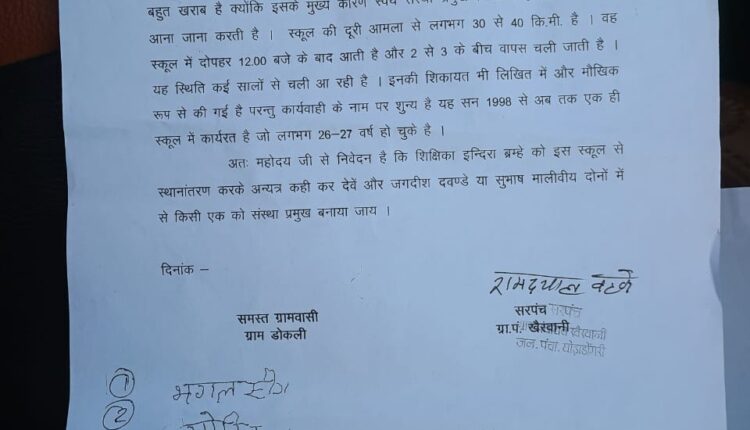 बहुत खराब है क्योंकि इसके मुख्य कारण स्वयं संस्था
आना जाना करती है । स्कूल की दूरी आमला से लगभग 30 से 40 कि.मी. है । वह
स्कूल में दोपहर 12.00 बजे के बाद आती है और 2 से 3 के बीच वापस चली जाती है ।
यह स्थिति कई सालों से चली आ रही है । इनकी शिकायत भी लिखित में और मौखिक
रूप से की गई है परन्तु कार्यवाही के नाम पर शून्य है यह सन 1998 से अब तक एक ही
स्कूल में कार्यरत है जो लगभग 26–27 वर्ष हो चुके है ।
अतः महोदय जी से निवेदन है कि शिक्षिका इन्दिरा ब्रम्हे को इस स्कूल से
स्थानांतरण करके अन्यत्र कही कर देवें और जगदीश दवण्डे या सुभाष मालीवीय दोनों में
से किसी एक को संस्था प्रमुख बनाया जाय ।
दिनांक –
रामदयाल
समस्त ग्रामवासी
ग्राम डोकली
सरपंच
ग्रा.पं. खैरवानी
सरपंच
जन. पंचा. घोड़ाडोंगरी
1
2